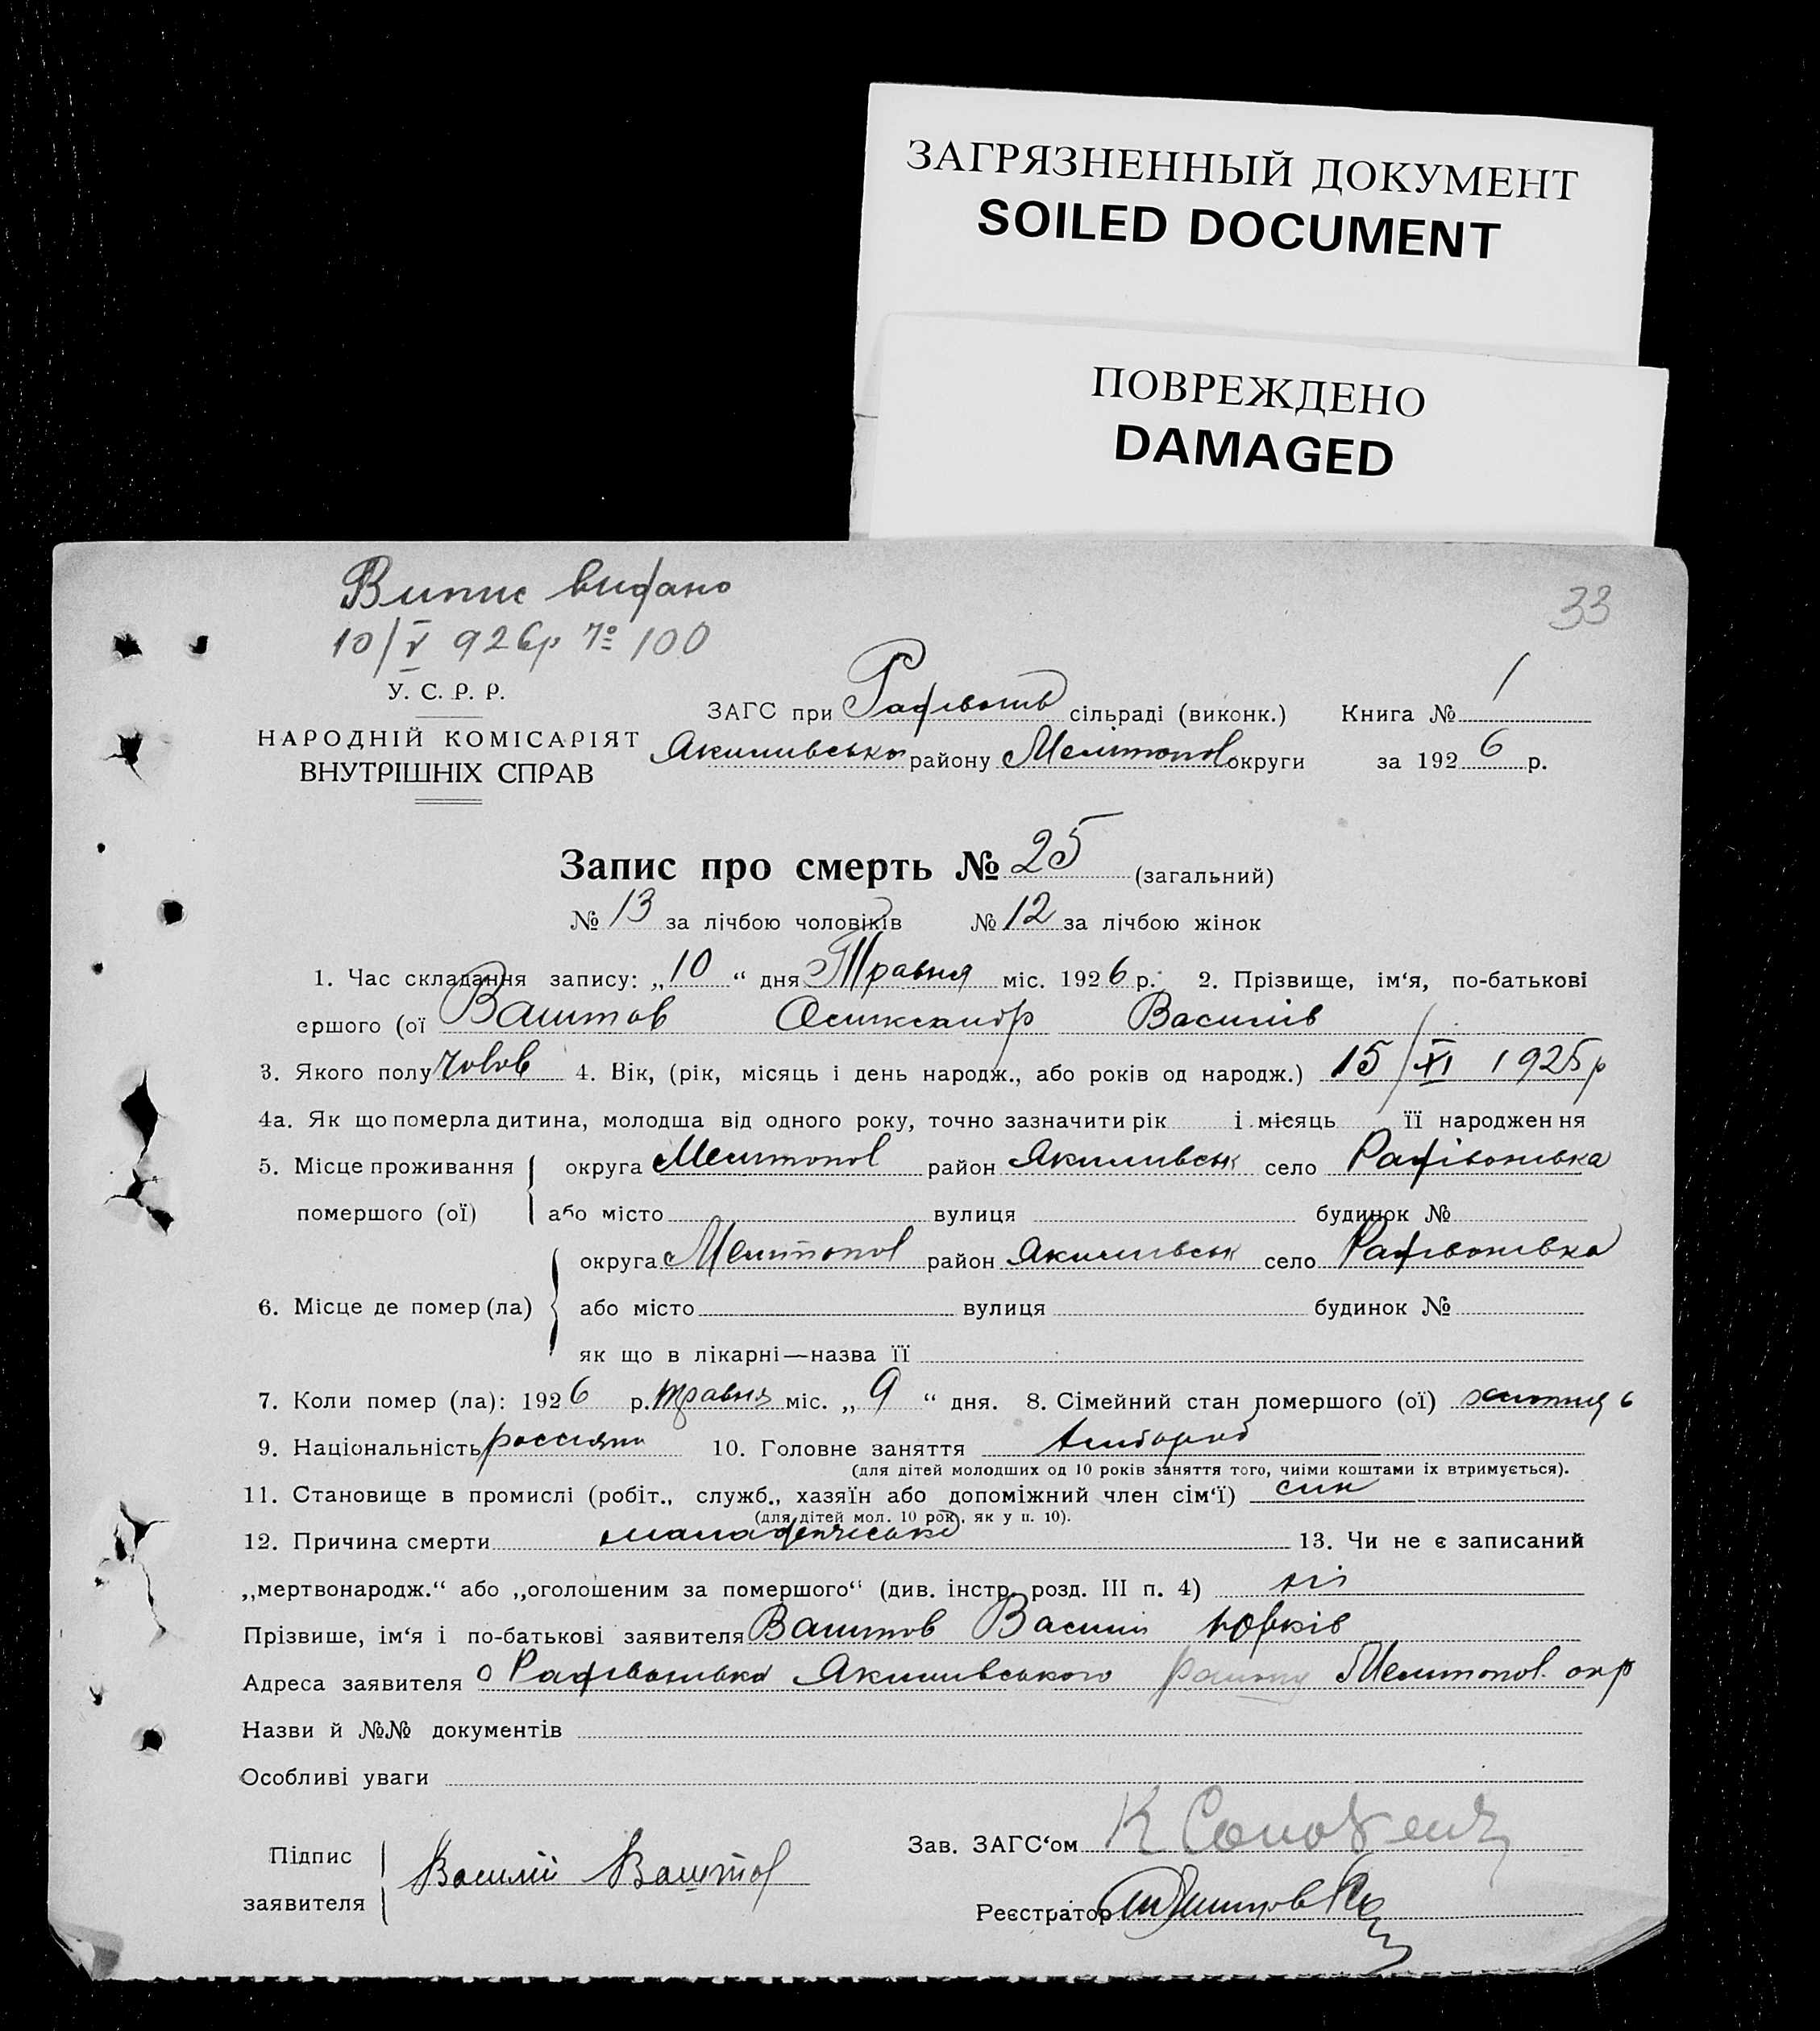 ЗАГРЯЗНЕННЫЙ ДОКУМЕНТ
SOILED DOCUMENT
ПОВРЕЖДЕНО
DAMAGED
Випис видано
33
10/V 926р № 100
У. С. Р. Р.
НАРОДНІЙ КОМІСАРІЯТ
ВНУТРІШНІХ СПРАВ
ЗАГС при сільраді (виконк.) Книга № 1
Якимивсько району Мелітопол округи за 1926 р.
Запис про смерть № 25 (загальний)
№ 13 за лічбою чоловіків № 12 за лічбою жінок
1. Час складання запису: „10“ дня Травня міс. 1926 р. 2. Прізвище, ім‘я, по-батькові
ершого (ої Ваштов Олександр Василів
3. Якого полу чолов 4. Вік, (рік, місяць і день народж., або років од народж.) 15/XI 1925р
4а. Як що померла дитина, молодша від одного року, точно зазначити рік і місяць її народження
5. Місце проживання округа Мелитопол район Якимивськ село Радівонівка
помершого (ої) або місто вулиця будинок №
округа Мелитопол район Якимивськ село Радивонивка
6. Місце де помер (ла) або місто вулиця будинок №
як що в лікарні—назва її
7. Коли помер (ла): 1926 р. травня міс. „9“ дня. 8. Сімейний стан помершого (ої)
9. Національність 10. Головне заняття хлібороб
(для дітей молодших од 10 років заняття того, чиїми коштами їх втримується).
11. Становище в промислі (робіт., служб., хазяїн або допоміжний член сім‘ї) син
(для дітей мол. 10 рок., як у п. 10).
12. Причина смерти 13. Чи не є записаний
„мертвонародж.“ або „оголошеним за помершого“ (див. інстр. розд. III п. 4) ні
Прізвише, ім‘я і по-батькові заявителя Ваштов Василі
Адреса заявителя с Радивонивка Якимивського району Мелитопол. окр
Назви й №№ документів
Особливі уваги
Підпис
заявителя
Василій Ваштов
Зав. ЗАГС‘ом
Реєстратор